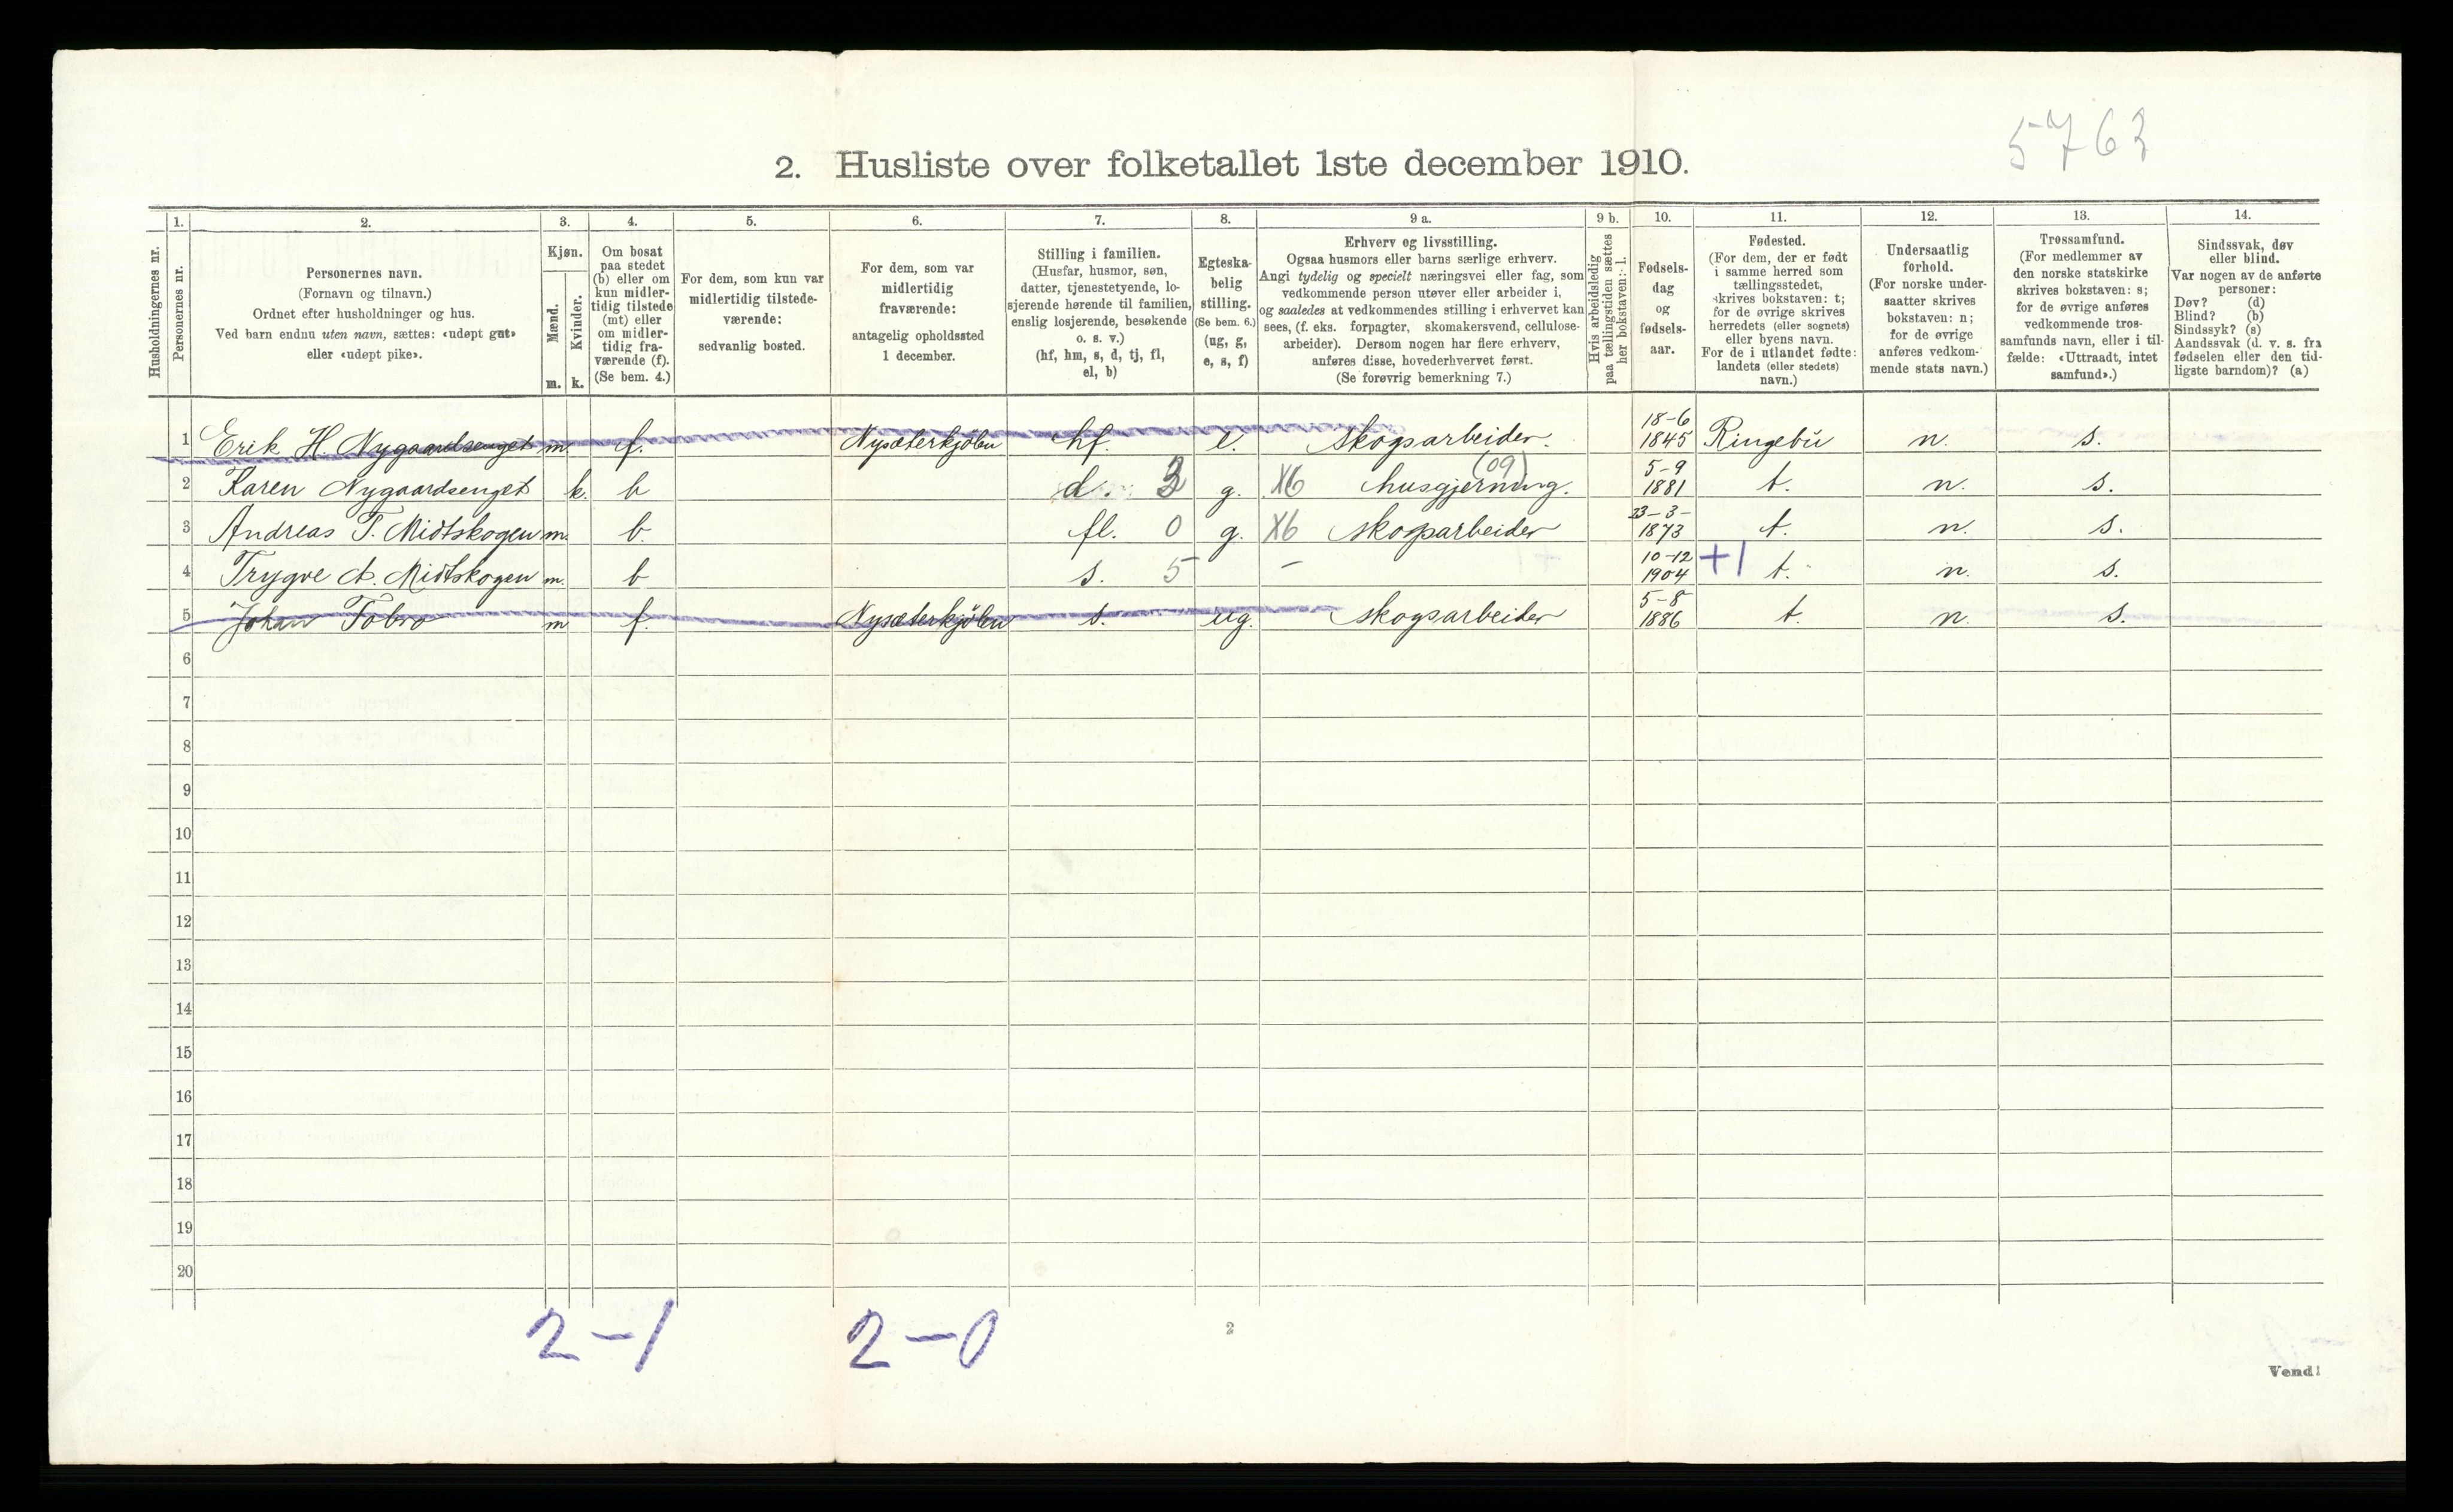 5763
2. Husliste over folketallet 1ste december 1910.
Husholdningernes nr.
1.
Personernes nr.
2.
Personernes navn.
(Fornavn og tilnavn.)
Ordnet efter husholdninger og hus.
Ved barn endnu uten navn, sættes: «udøpt gut»
eller «udøpt pike».
3.
Kjøn.
Mænd.
Kvinder.
m. k.
4.
Om bosat
paa stedet
(b) eller om
kun midler-
tidig tilstede
(mt) eller
om midler-
tidig fra-
værende (f).
(Se bem. 4.)
5.
For dem, som kun var
midlertidig tilstede-
værende:
sedvanlig bosted.
6.
For dem, som var
midlertidig
fraværende:
antagelig opholdssted
1 december.
7.
Stilling i familien.
(Husfar, husmor, søn,
datter, tjenestetyende, lo-
sjerende hørende til familien,
enslig losjerende, besøkende
o. s. v.)
(hf, hm, s, d, tj, fl,
el, b)
8.
Egteska-
belig
stilling.
(Se bem. 6.)
(ug, g,
e, s, f)
9 a.
Erhverv og livsstilling.
Ogsaa husmors eller barns særlige erhverv.
Angi tydelig og specielt næringsvei eller fag, som
vedkommende person utøver eller arbeider i,
og saaledes at vedkommendes stilling i erhvervet kan
sees, (f. eks. forpagter, skomakersvend, cellulose-
arbeider). Dersom nogen har flere erhverv,
anføres disse, hovederhvervet først.
(Se forøvrig bemerkning 7.)
9 b.
Hvis arbeidsledig
paa tællingstiden sættes
her bokstaven: l.
10.
Fødsels-
dag
og
fødsels-
aar.
11.
Fødested.
(For dem, der er født
i samme herred som
tællingsstedet,
skrives bokstaven: t;
for de øvrige skrives
herredets (eller sognets)
eller byens navn.
For de i utlandet fødte:
landets (eller stedets)
navn.)
12.
Undersaatlig
forhold.
(For norske under-
saatter skrives
bokstaven: n;
for de øvrige
anføres vedkom-
mende stats navn.)
13.
Trossamfund.
(For medlemmer av
den norske statskirke
skrives bokstaven: s;
for de øvrige anføres
vedkommende tros-
samfunds navn, eller i til-
fælde: «Uttraadt, intet
samfund».)
14.
Sindssvak, døv
eller blind.
Var nogen av de anførte
personer:
Døv? (d)
Blind? (b)
Sindssyk? (s)
Aandssvak (d. v. s. fra
fødselen eller den tid-
ligste barndom)? (a)
1 Erik H. Nygaardsenget m. f. Nysæterkjølen hf. e. skogsarbeider. 18-6 1845 Ringebu n. s.
2 Karen Nygaardsenget k. b d. 3 g. X6 husgjerning. (09) 5-9 1881 t. n. s.
3 Andreas T. Midtskogen m. b. fl. 0 g. X6 skogsarbeider 23-3- 1873 t. n. s.
4 Trygve A. Midtskogen m. b s. 5 - 10-12 1904 +1 t. n. s.
5 Johan m f. Nysæterkjølen ug. skogsarbeider 5-8 1886 t. n. s.
6
7
8
9
10
11
12
13
14
15
16
17
18
19
20
2-1 2-0
2
Vend!